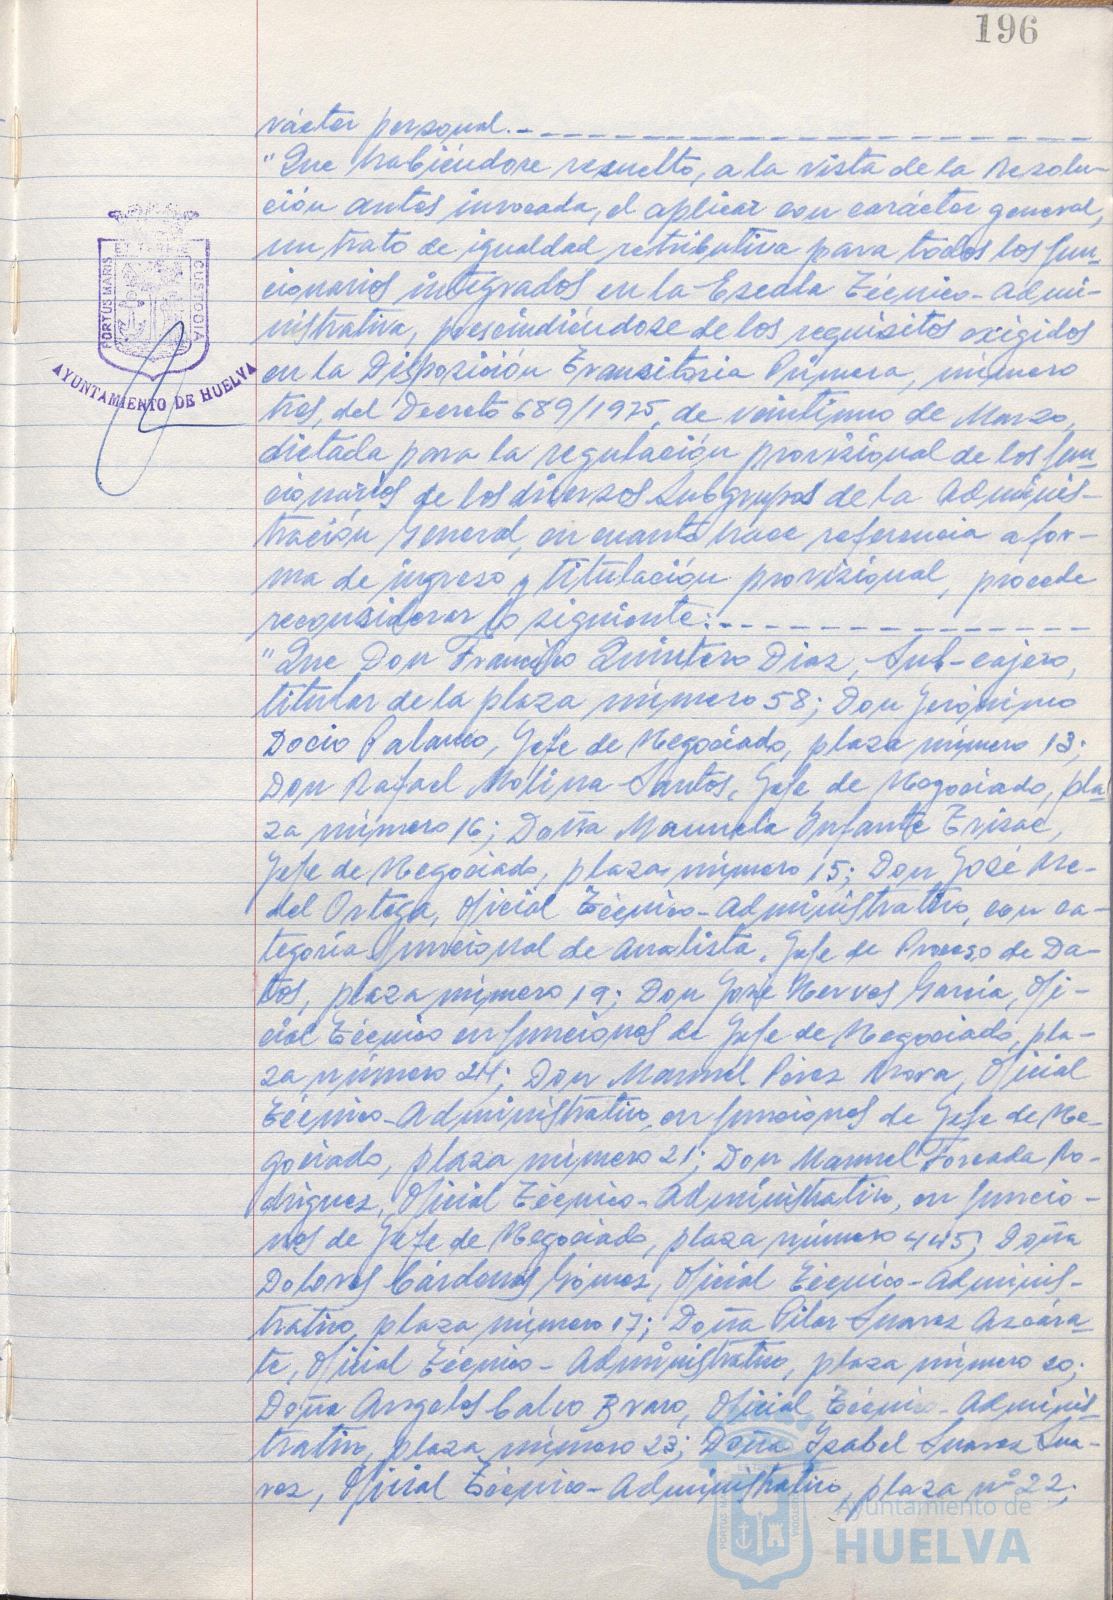 196
rácter personal.-
"Que habiéndose resuelto, a la vista de la Resolu-
ción antes invocada, el aplicar con carácter general,
un trato de igualdad retributiva para todos los fun-
cionarios integrados en la Escala Técnico-Admi-
nistrativa, prescindiéndose de los requisitos exigidos
en la Disposición Transitoria Primera, número
tres, del Decreto 689/1975, de veintiuno de Marzo,
dictada para la regulación provisional de los fun-
cionarios de los diversos Subgrupos de la Adminis-
tración General, en cuanto hace referencia a for-
ma de ingreso y titulación provisional, procede
reconsiderar lo siguiente:-
"Que Don Francisco Quintero Diaz, Sub-cajero,
titular de la plaza número 58; Don Jerónimo
Docio Palanco, Jefe de Negociado, plaza número 13;
Don Rafael Molina Santos, Jefe de Negociado, pla-
za número 16; Doña Manuela Infante Trisac,
Jefe de Negociado, plaza número 15; Don José
del Ortega, Oficial Técnico-Administrativo, con ca-
tegoría funcional de analista, Jefe de Proceso de Da-
tos, plaza número 19; Don José Nerves García, Ofi-
cial Técnico en funciones de Jefe de Negociado, pla-
za número 24; Don Manuel Pérez Mora, Oficial
Técnico-Administrativo, en funciones de Jefe de Ne-
gociado, plaza número 21; Don Manuel Forcada Ro-
dríguez, Oficial Técnico-Administrativo, en funcio-
nes de Jefe de Negociado, plaza número 445; Doña
Dolores Cárdenas Gómez, Oficial Técnico-Adminis-
trativo, plaza número 17; Doña Pilar Suarez Azcára-
te, Oficial Técnico-Administrativo, plaza número 20;
Doña Angeles Calvo Bravo, Oficial Técnico-Adminis-
trativo, plaza número 23; Doña Isabel Suarez Sua-
rez, Oficial Técnico-Administrativo, plaza nº 22;
PORTUS MARIS
ET TERRAE
CUSTODIA
AYUNTAMIENTO DE HUELVA
Ayuntamiento de
HUELVA